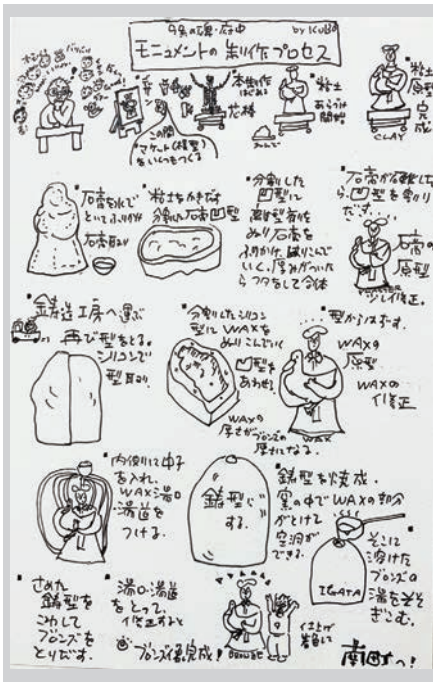 9条の碑・府中 by KUBO
モニュメントの制作プロセス
デザイン
この間
マケット(模型)
をいくつもつくる
本制作
はじめる
心棒
粘土
あらづけ
開始
粘土
原型
完成
CLAY
石膏を水で
といてふりかけ
石膏取り
粘土をかきだす
分割した石膏凹型
分割した
凹型に
離型剤を
ぬり石膏を
ふりかけ、
いく。厚みがついた
らフタをして合体
石膏が硬化した
ら凹型を割り
だす
石膏の
原型
修正。
鋳造工房へ運ぶ
再び型をとる。
シリコンで
型取り。
分割したシリコン
型にWAXを
ぬりこんでいく
凹型を
あわせる
WAXの
厚さがブロンズの
厚さになる。
型からはずす。
WAXの
原型
WAXの
修正
WAX
内側に中子
を入れ、
WAX湯口
湯道を
つける。
鋳型に
する。
鋳型を焼成。
窯の中でWAXの部分
がとけて
空洞が
できる。
IGATA
そこに
溶けた
ブロンズの
湯をそそ
ぎこむ。
さめた
鋳型を
こわして
ブロンズを
とりだす。
湯口・湯道
をとって、
修正すると
ブロンズ像完成!
BRONZE
仕上げ
着色して